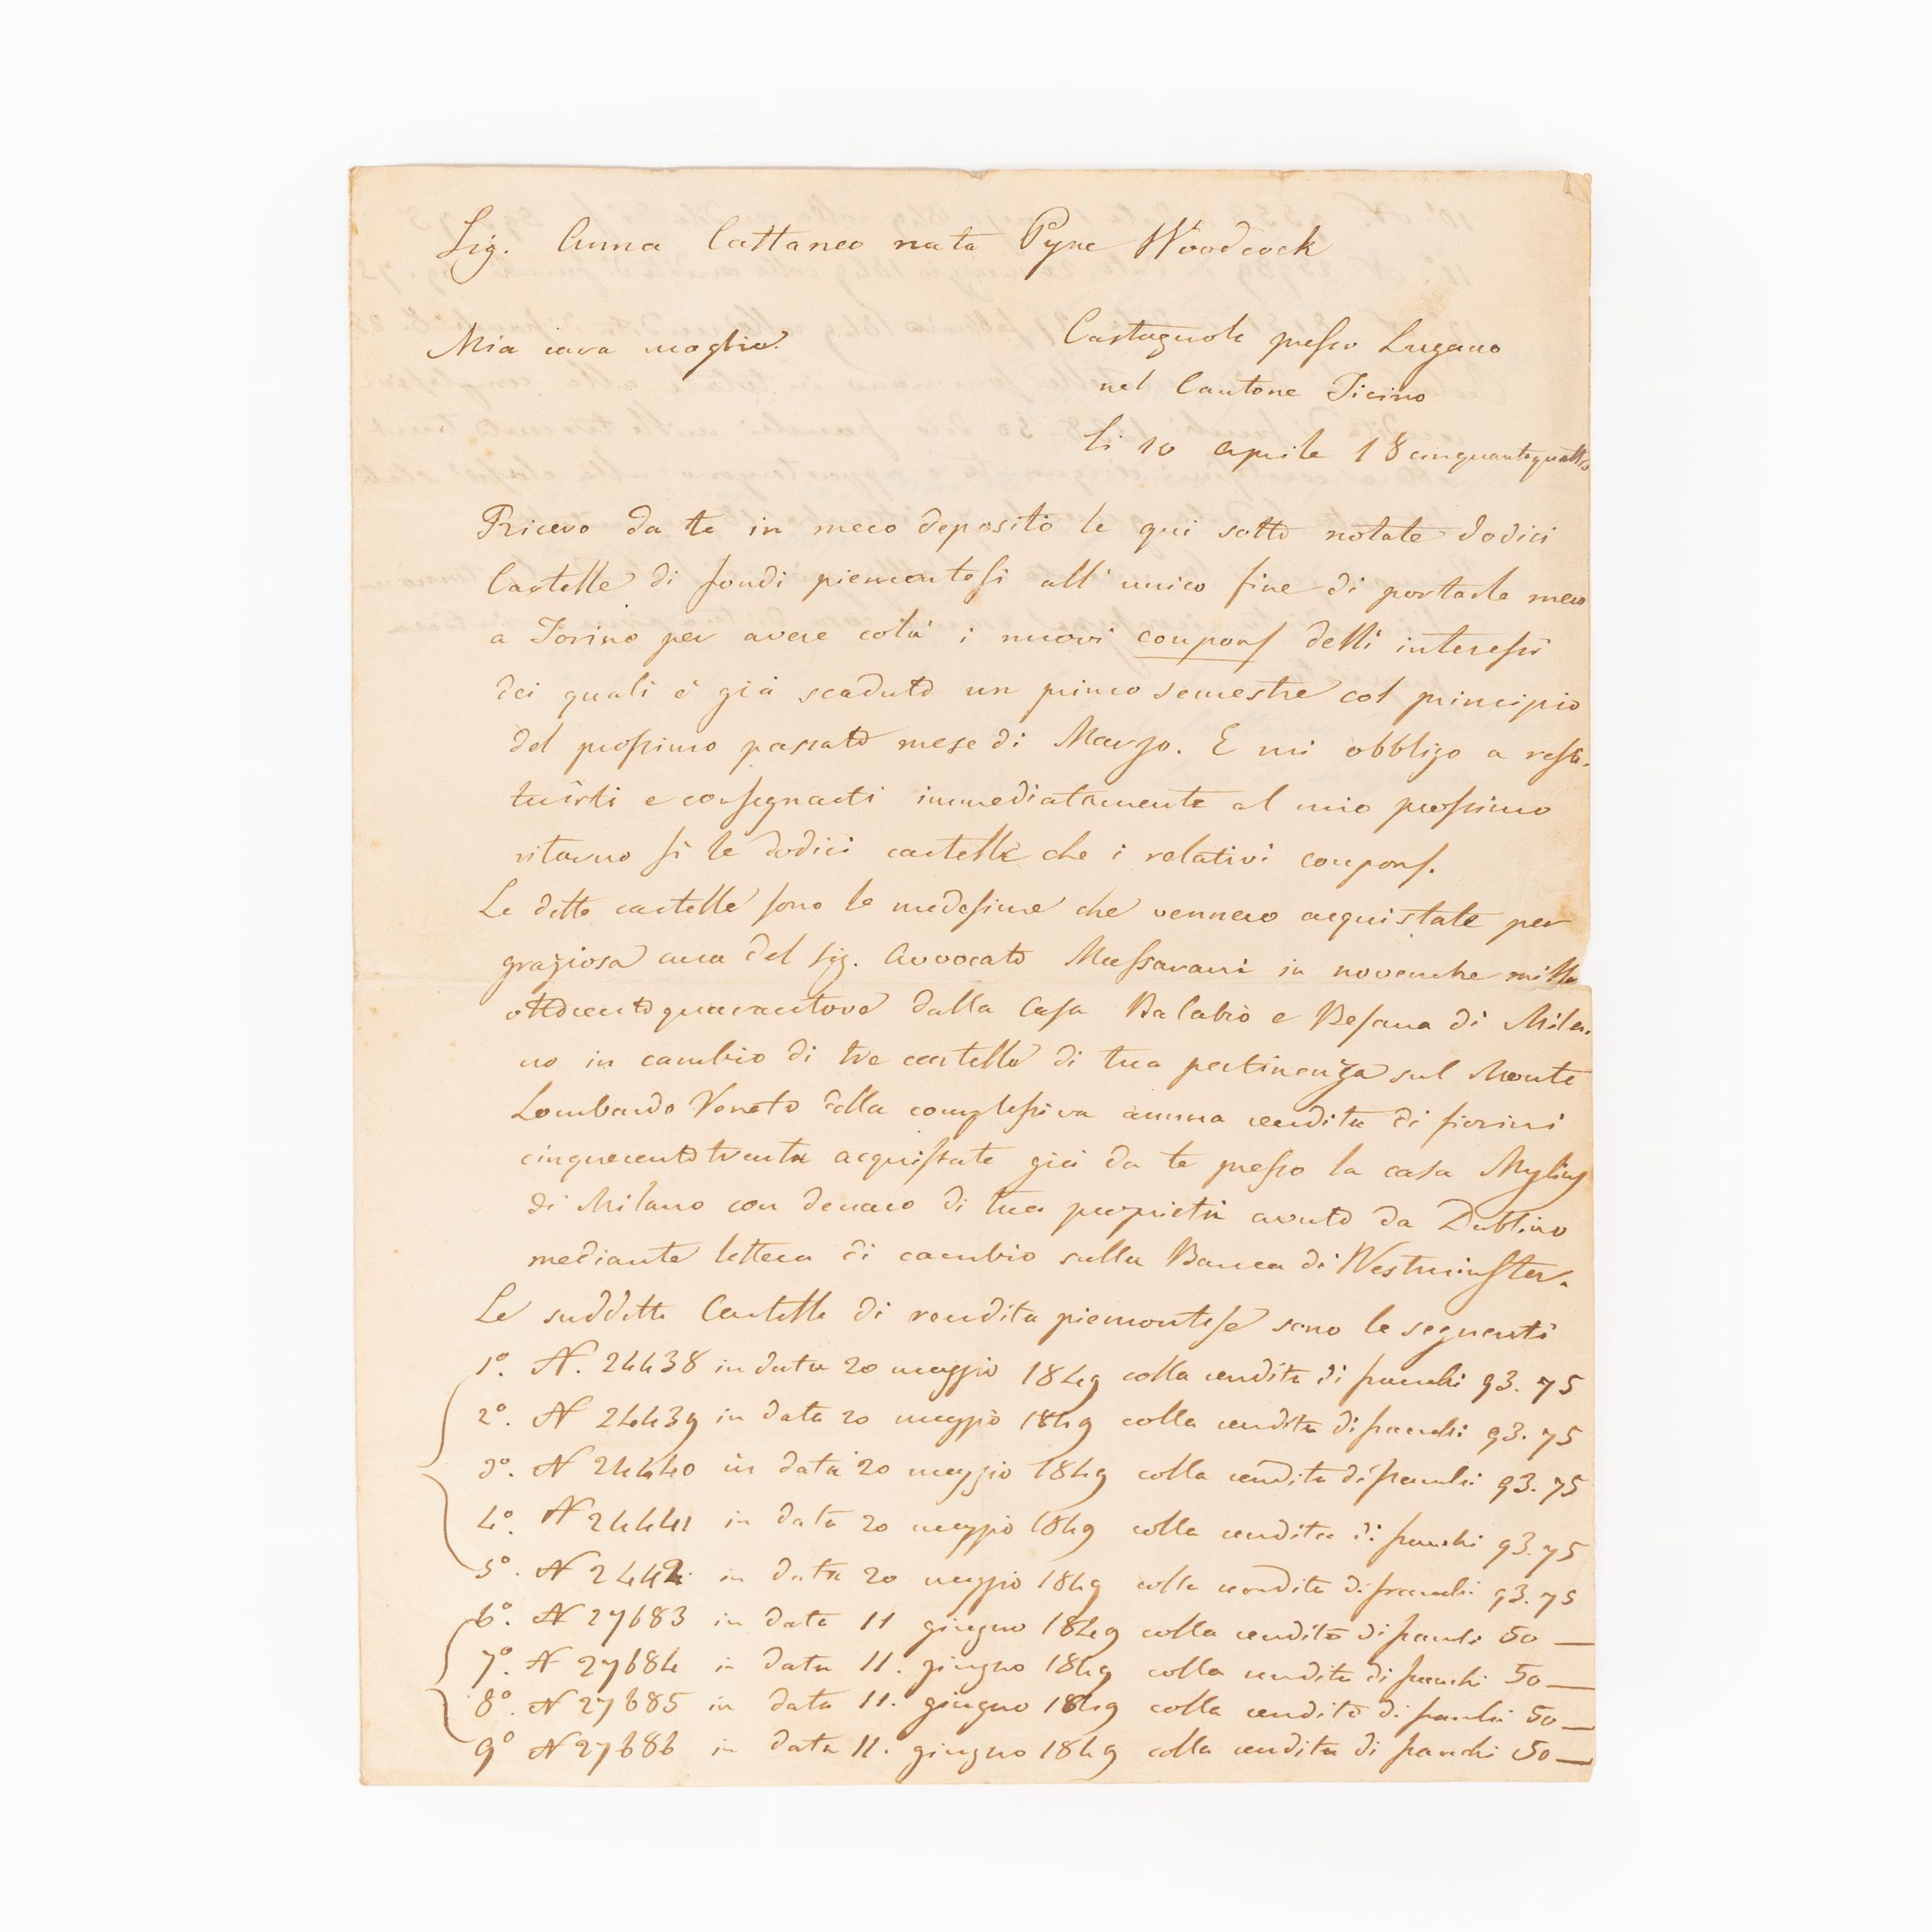 Sig. Anna Cattaneo nata Pyne Woodcock
Mia cara moglie.
Castagnola presso Lugano
nel Cantone Ticino
li 10 aprile 18cinquantaquattro
Ricevo da te in meco deposito le qui sotto notate dodici
Cartelle di fondi piemontesi all'unico fine di portarle meco
a Torino per avere colà i nuovi coupons delli interessi
dei quali è già scaduto un primo semestre col principio
del prossimo passato mese di Marzo. E mi obbligo a resti-
tuirti e consegnarti immediatamente al mio prossimo
ritorno sì le dodici cartelle che i relativi coupons.
Le dette cartelle sono le medesime che vennero acquistate per
graziosa cura del sig. Avvocato Massarani in novembre mille
ottocentoquarantanove dalla Casa Balabio e Besana di Mila-
no in cambio di tre cartelle di tua pertinenza sul Monte
Lombardo Veneto della complessiva annua rendita di fiorini
cinquecentotrenta acquistate già da te presso la casa Mylius
di Milano con denaro di tua proprietà avuto da Dublino
mediante lettera di cambio sulla Banca di Westminster.
Le suddette Cartelle di rendita piemontese sono le seguenti
1º. N. 24438 in data 20 maggio 1849 colla rendita di franchi 93.75
2º. N 24439 in data 20 maggio 1849 colla rendita di franchi 93.75
3º. N 24440 in data 20 maggio 1849 colla rendita di franchi 93.75
4º. N 24441 in data 20 maggio 1849 colla rendita di franchi 93.75
5º. N 2442 in data 20 maggio 1849 colla rendita di franchi 93.75
6º. N 27683 in data 11 giugno 1849 colla rendita di franchi 50 —
7º. N 27684 in data 11. giugno 1849 colla rendita di franchi 50 —
8º. N 27685 in data 11. giugno 1849 colla rendita di franchi 50 —
9º N 27686 in data 11. giugno 1849 colla rendita di franchi 50 —